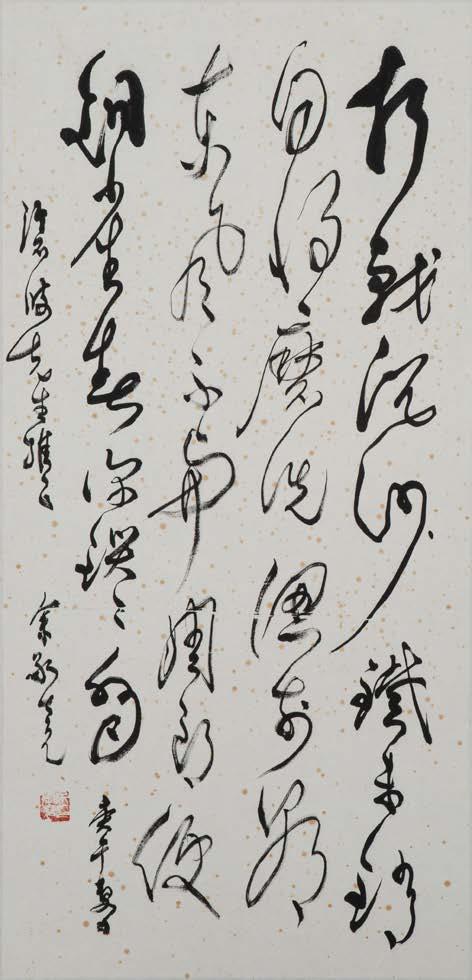 折戟沉沙鐵未銷
自將磨洗認前朝
東風不與周郎便
銅雀春深鎖二喬 庚午夏日
先生雅正 余承堯